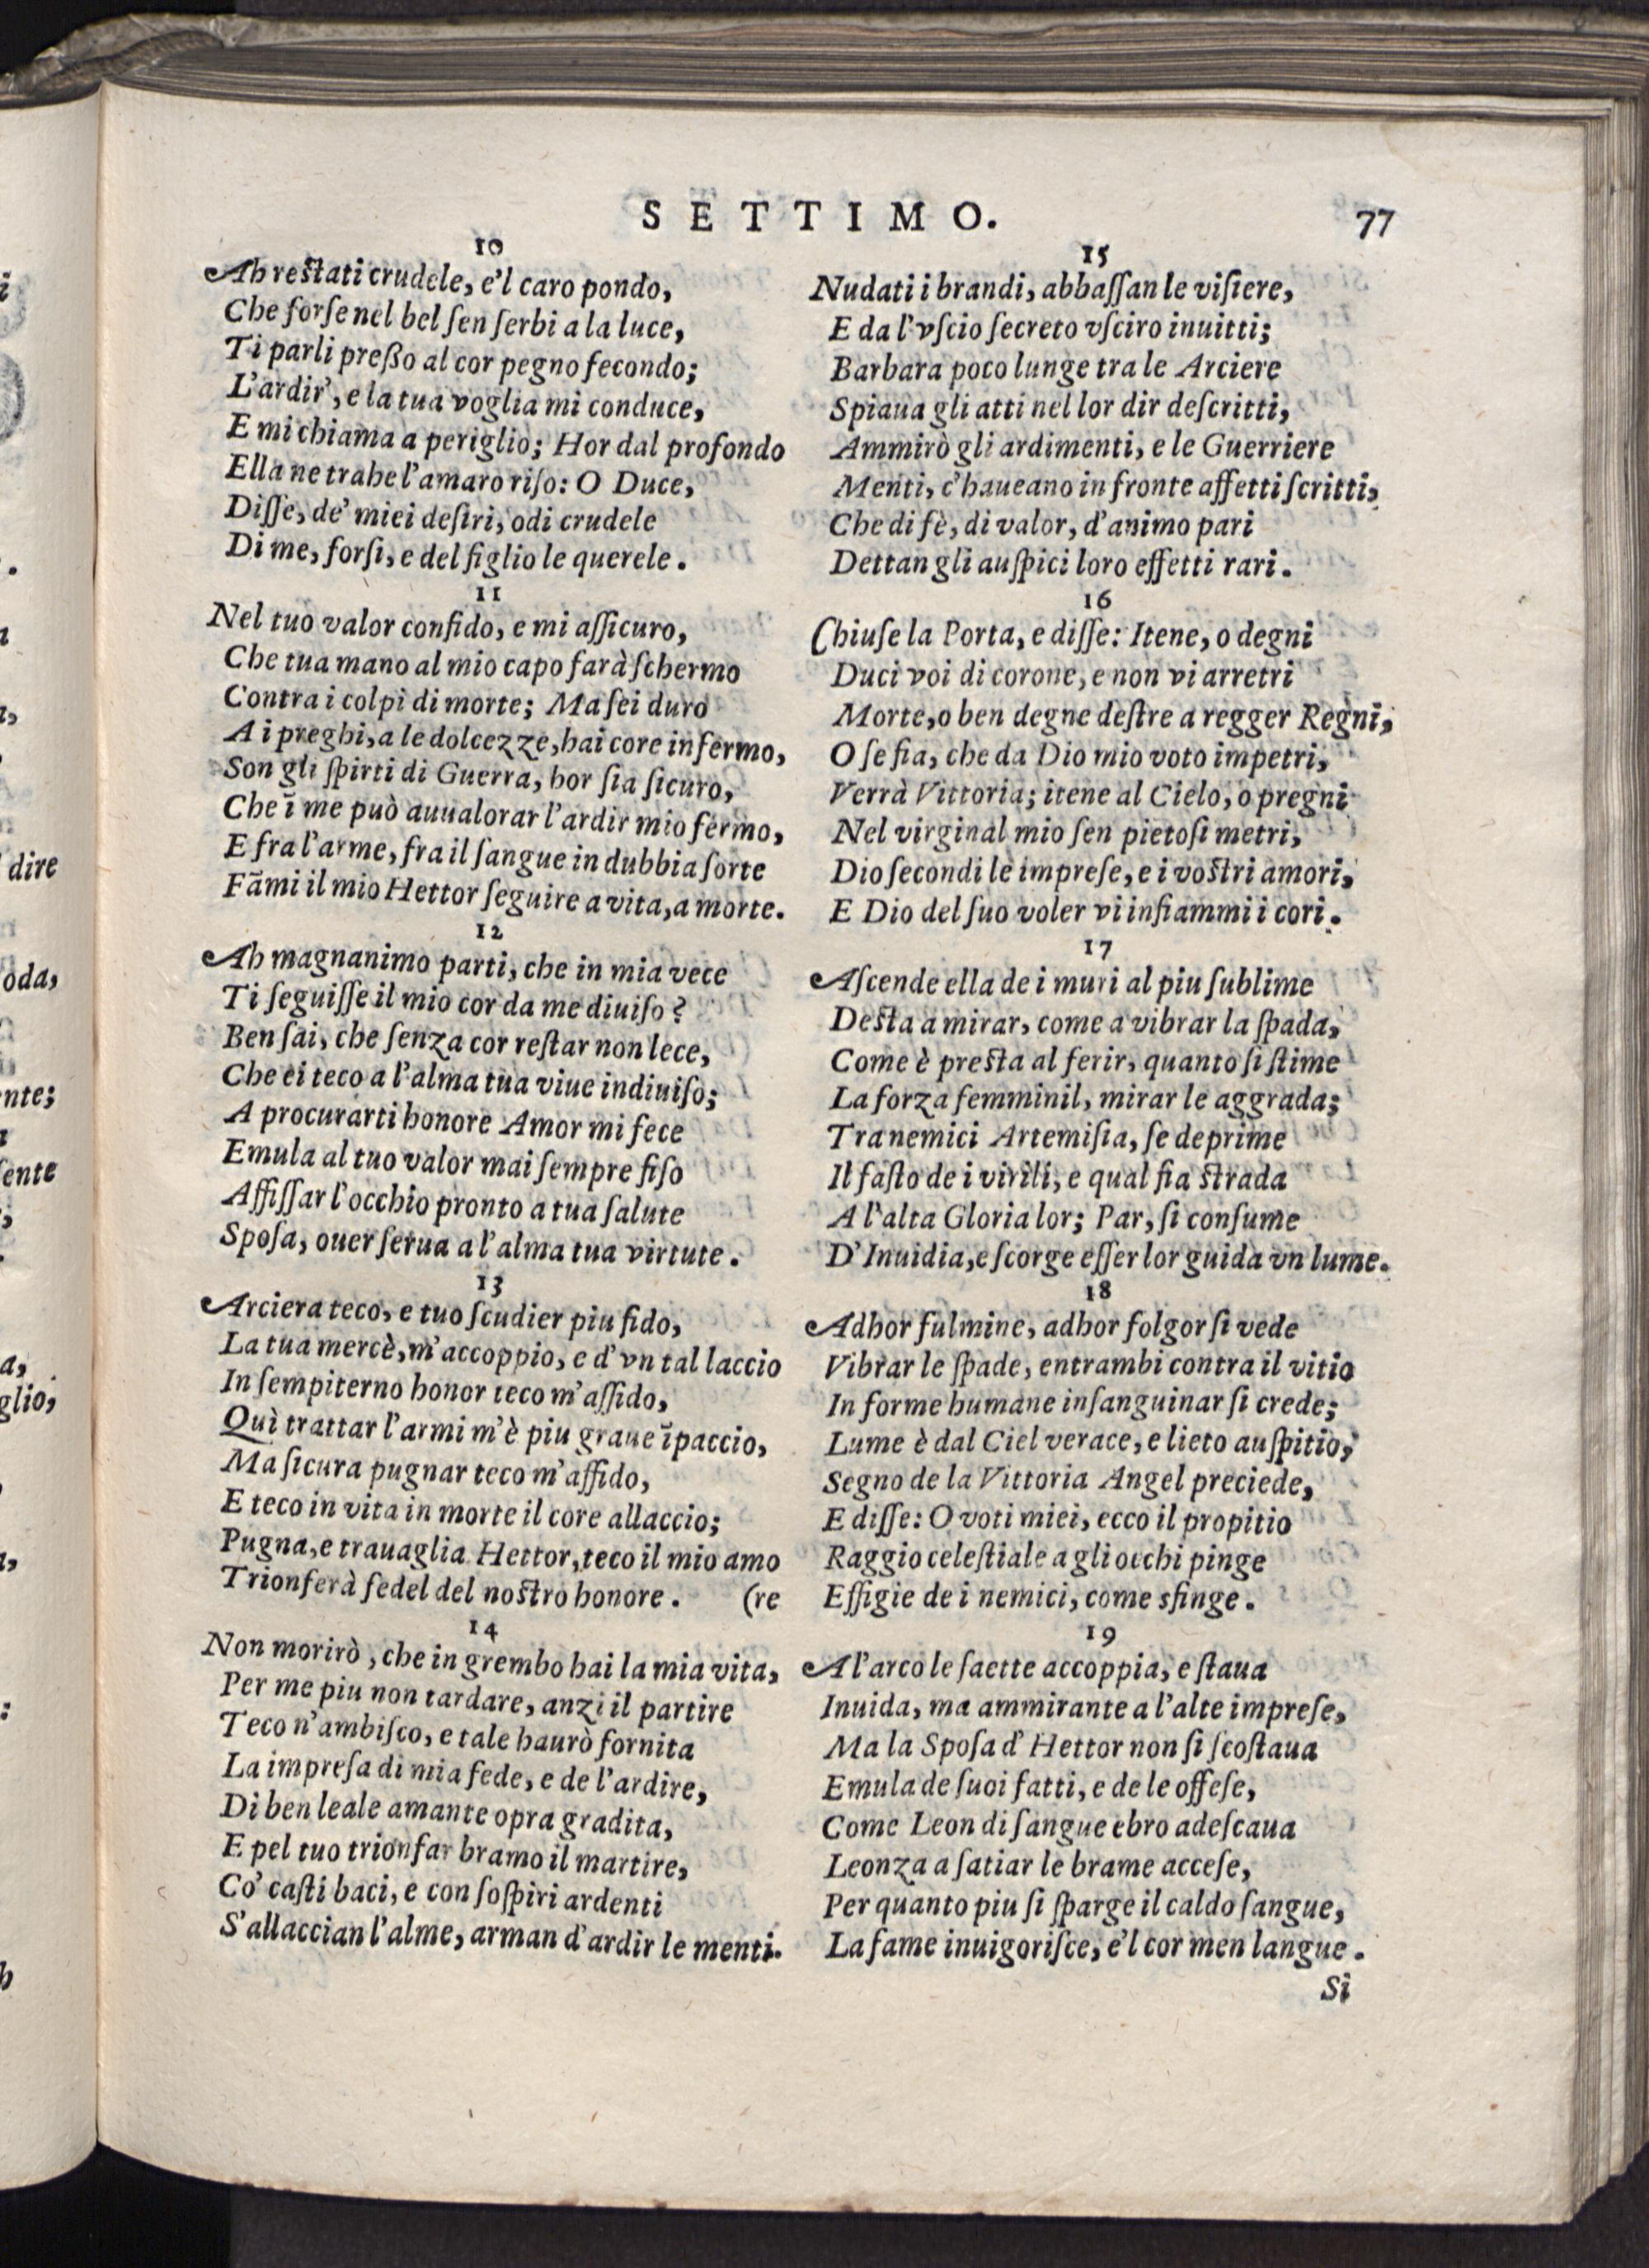 SETTIMO. 77
10
Ah restati crudele, e'l caro pondo,
Che forſe nel bel ſen ſerbi a la luce,
Ti parli preßo al cor pegno fecondo;
L'ardir, e la tua voglia mi conduce,
E mi chiama a periglio; Hor dal profondo
Ella ne trahe l'amaro riſo: O Duce,
Diſſe, de' miei deſiri, odi crudele
Di me, forſi, e del figlio le querele.
11
Nel tuo valor confido, e mi aſſicuro,
Che tua mano al mio capo farà ſchermo
Contra i colpi di morte; Ma ſei duro
A i preghi, a le dolcezze, hai core infermo,
Son gli ſpirti di Guerra, hor ſia ſicuro,
Che ĩ me può auualorar l'ardir mio fermo,
E fra l'arme, fra il ſangue in dubbia ſorte
Fãmi il mio Hettor ſeguire a vita, a morte.
12
Ah magnanimo parti, che in mia vece
Ti ſeguiſſe il mio cor da me diuiſo?
Ben ſai, che ſenza cor reſtar non lece,
Che ei teco a l'alma tua viue indiuiſo;
A procurarti honore Amor mi fece
Emula al tuo valor mai ſempre fiſo
Affiſſar l'occhio pronto a tua ſalute
Spoſa, ouer ſerua a l'alma tua virtute.
13
Arciera teco, e tuo ſcudier piu fido,
La tua mercè, m'accoppio, e d'vn tal laccio
In ſempiterno honor teco m'aſſido,
Quì trattar l'armi m'è piu graue ĩpaccio,
Ma ſicura pugnar teco m'affido,
E teco in vita in morte il core allaccio;
Pugna, e trauaglia Hettor, teco il mio amo
Trionferà fedel del nostro honore. (re
14
Non morirò, che in grembo hai la mia vita,
Per me piu non tardare, anzi il partire
Teco n'ambiſco, e tale haurò fornita
La impreſa di mia fede, e de l'ardire,
Di ben leale amante opra gradita,
E pel tuo trionfar bramo il martire,
Co' caſti baci, e con ſoſpiri ardenti
S'allaccian l'alme, arman d'ardir le menti.
15
Nudati i brandi, abbaſſan le viſiere,
E da l'vſcio ſecreto vſciro inuitti;
Barbara poco lunge tra le Arciere
Spiaua gli atti nel lor dir deſcritti,
Ammirò gli ardimenti, e le Guerriere
Menti, c'haueano in fronte affetti ſcritti,
Che di fè, di valor, d'animo pari
Dettan gli auſpici loro effetti rari.
16
Chiuſe la Porta, e diſſe: Itene, o degni
Duci voi di corone, e non vi arretri
Morte, o ben degne deſtre a regger Regni,
O ſe fia, che da Dio mio voto impetri,
Verrà Vittoria; itene al Cielo, o pregni
Nel virginal mio ſen pietoſi metri,
Dio ſecondi le impreſe, e i vostri amori,
E Dio del ſuo voler vi infiammi i cori.
17
Aſcende ella de i muri al piu ſublime
Desta a mirar, come a vibrar la ſpada,
Come è presta al ferir, quanto ſi ſtime
La forza femminil, mirar le aggrada;
Tra nemici Artemiſia, ſe deprime
Il faſto de i virili, e qual fia strada
A l'alta Gloria lor; Par, ſi conſume
D'Inuidia, e ſcorge eſſer lor guida vn lume.
18
Adhor fulmine, adhor folgor ſi vede
Vibrar le ſpade, entrambi contra il vitio
In forme humane inſanguinar ſi crede;
Lume è dal Ciel verace, e lieto auſpitio,
Segno de la Vittoria Angel preciede,
E diſſe: O voti miei, ecco il propitio
Raggio celeſtiale a gli occhi pinge
Effigie de i nemici, come sfinge.
19
A l'arco le ſaette accoppia, e ſtaua
Inuida, ma ammirante a l'alte impreſe,
Ma la Spoſa d'Hettor non ſi ſcoſtaua
Emula de ſuoi fatti, e de le offeſe,
Come Leon di ſangue ebro adeſcaua
Leonza a ſatiar le brame acceſe,
Per quanto piu ſi ſparge il caldo ſangue,
La fame inuigoriſce, e'l cor men langue.
Si